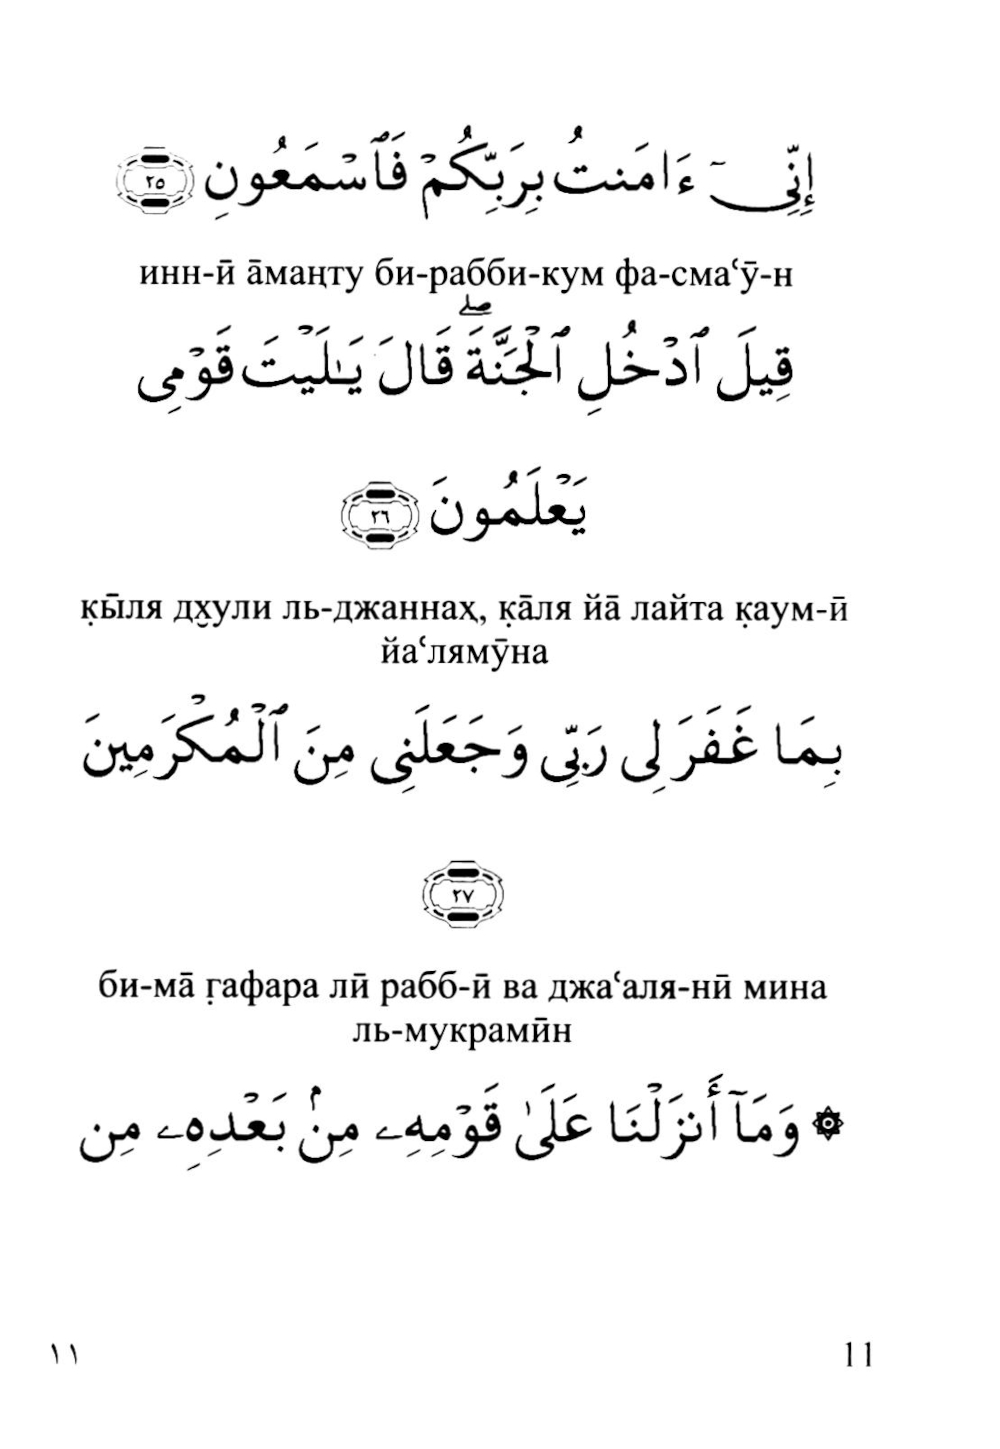 إِنِّىٓ ءَامَنتُ بِرَبِّكُمْ فَٱسْمَعُونِ ٢٥
инн-ӣ а̄маңту би-рабби-кум фа-смаʿӯ-н
قِيلَ ٱدْخُلِ ٱلْجَنَّةَ ۖ قَالَ يَـٰلَيْتَ قَوْمِى
يَعْلَمُونَ ٢٦
к̣ы̄ля дх̮ули ль-джаннах̣, к̣а̄ля йа̄ лайта к̣аум-ӣ
йаʿлямӯна
بِمَا غَفَرَ لِى رَبِّى وَجَعَلَنِى مِنَ ٱلْمُكْرَمِينَ
٢٧
би-ма̄ г̣афара лӣ рабб-ӣ ва джаʿаля-нӣ мина
ль-мукрамӣн
۞ وَمَآ أَنزَلْنَا عَلَىٰ قَوْمِهِۦ مِنۢ بَعْدِهِۦ مِن
١١ 11